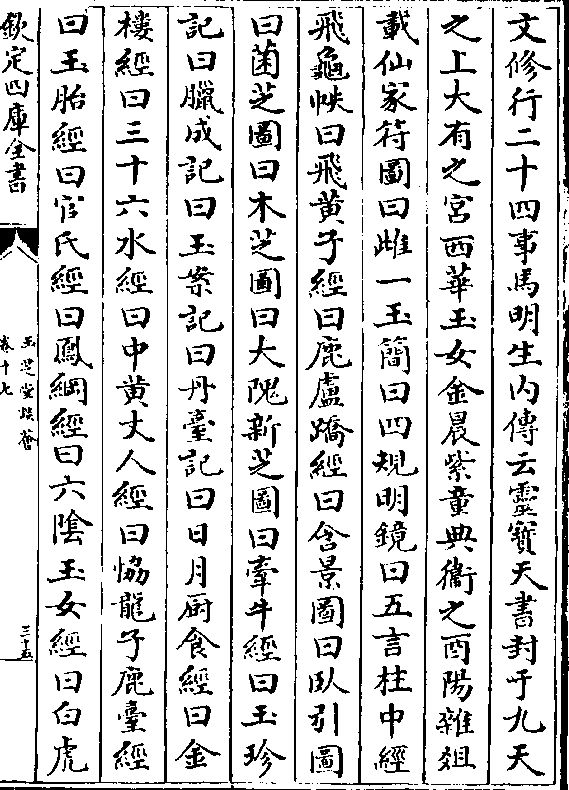 文修行二十四事馬明生内傳云靈寶天書封于九天
之上大有之宮西華玉女金晨紫童典衞之酉陽雜俎
載仙家符圖曰雌一玉簡曰四規明鏡曰五言柱中經
飛龜帙曰飛黄子經曰鹿盧蹻經曰含景圖曰臥引圖
曰菌芝圖曰木芝圖曰大隗新芝圖曰牽牛經曰玉珍
記曰臘成記曰玉案記曰丹臺記曰日月厨食經曰金
樓經曰三十六水經曰中黄丈人經曰恊龍子鹿臺經
曰玉胎經曰官氏經曰鳳綱經曰六陰玉女經曰白虎
欽定四庫全書
玉芝堂談薈
卷十七
三十五